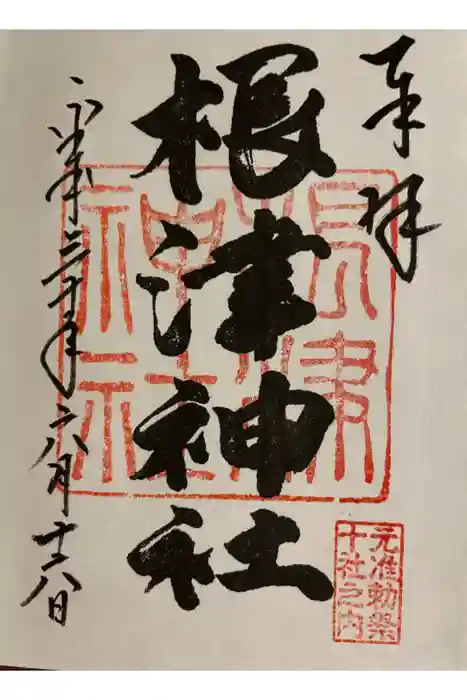 奉拝
根津神社
根津神社
元准勅祭
十社之内
平成三十年六月十八日